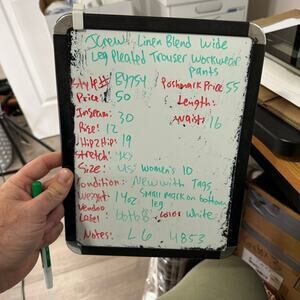 JCrew Linen Blend Wide
Leg Pleated Trouser Workwear
Pants
Style# Poshmark Price 55
Price: 50 Length:
Inseam: 30 Waist: 16
Rise: 12
Hip 2 Hip: 19
Stretch: yes
Size: US Women's 10
Condition: New with Tags
Weight: 14oz Small mark on bottom
leg
Vendoo
Label: Color White
Notes: L6 4853